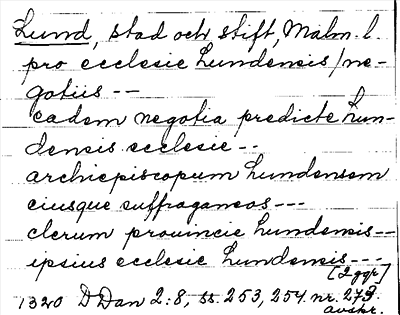 Lund, stad och stift, Malm. l.
pro ecclesie Lundensis / ne-
gotiis --
eadem negotia predicte Lun-
densis ecclesie --
archiepiscopum Lundensem
eiusque suffraganeos ---
clerum prouincie Lundensis --
ipsius ecclesie Lundensis ---
[2 ggr]
1320 DDan 2:8, ss. 253, 254 nr. 273.
avskr.